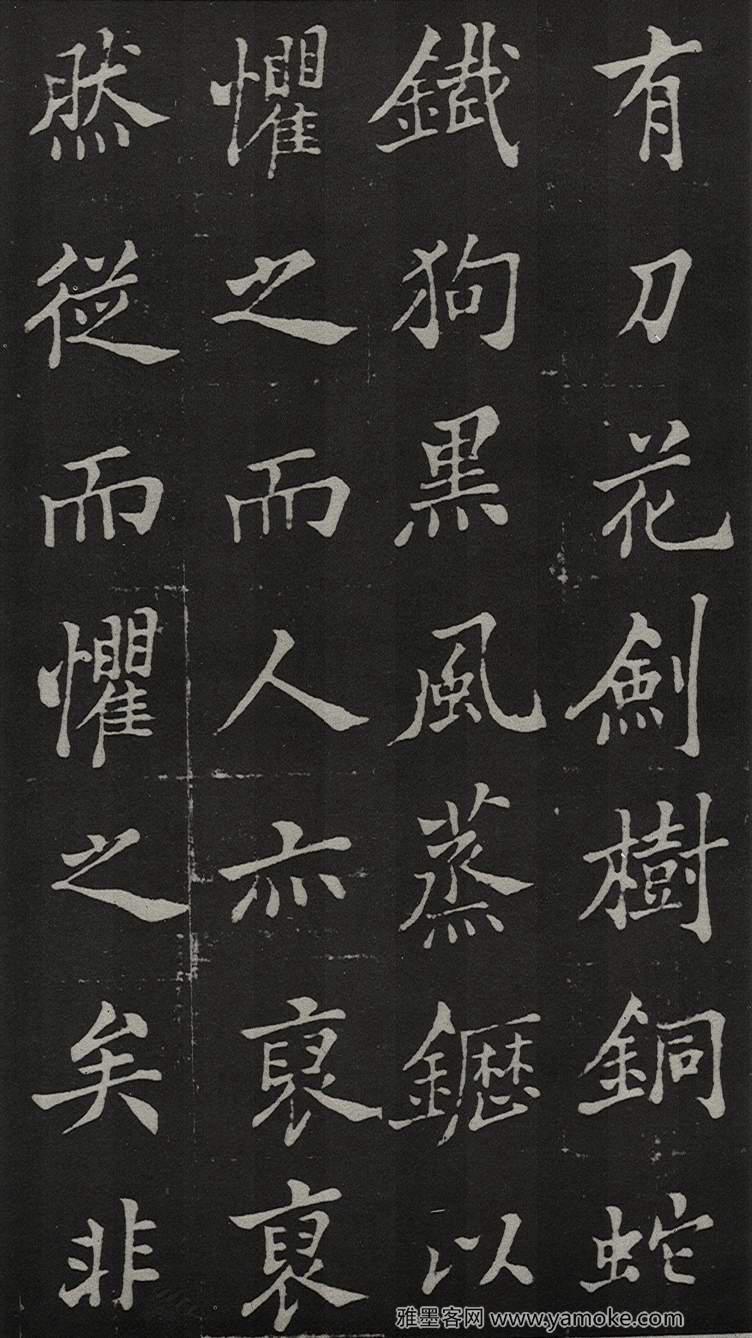 有刀花劍樹銅蛇
鐵狗黑風蒸䥶以
懼之而人亦裒裒
然從而懼之矣非
雅墨客网 www.yamoke.com